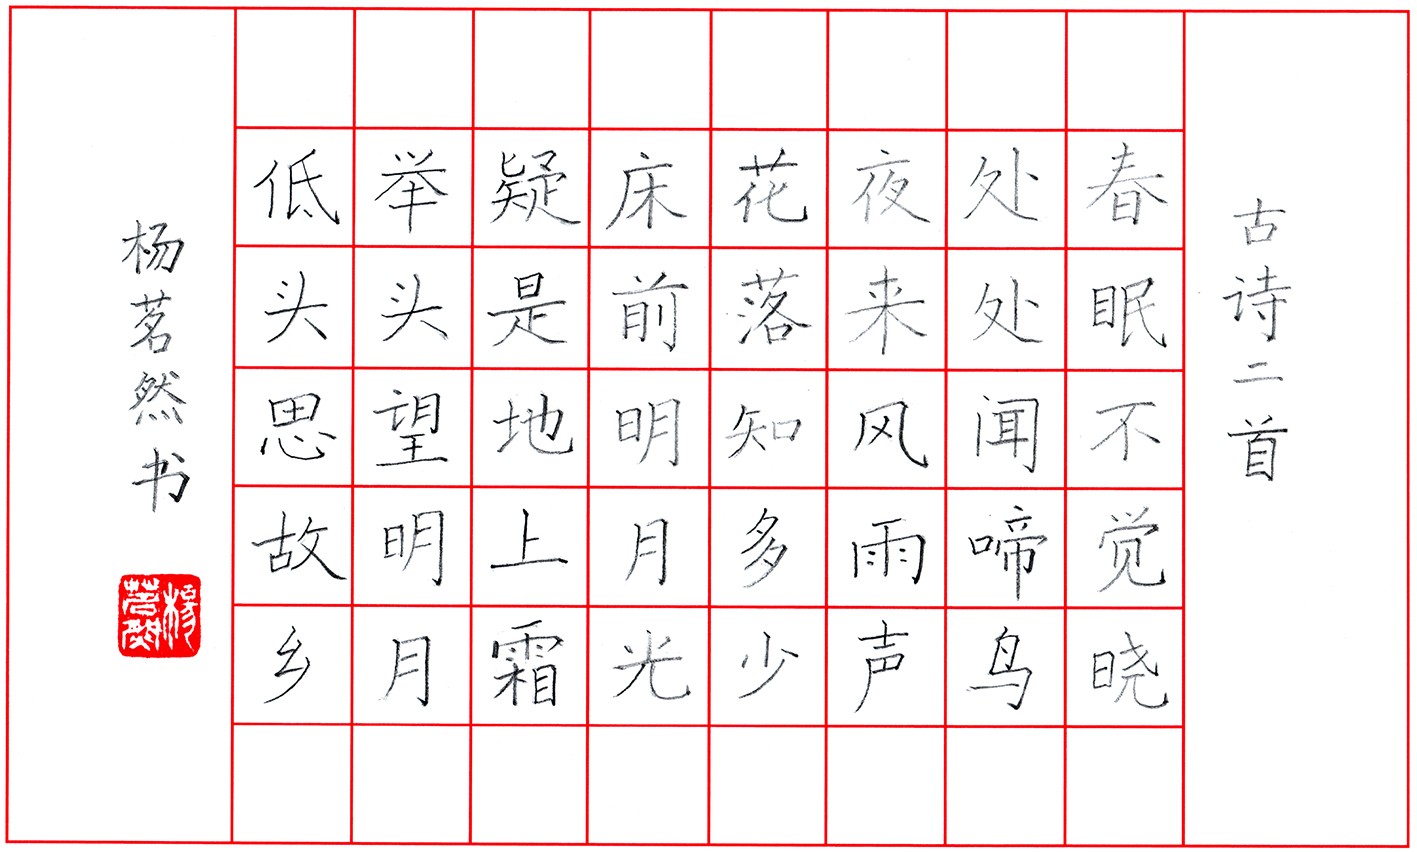 古诗二首
春眠不觉晓
处处闻啼鸟
夜来风雨声
花落知多少
床前明月光
疑是地上霜
举头望明月
低头思故乡
杨茗然书